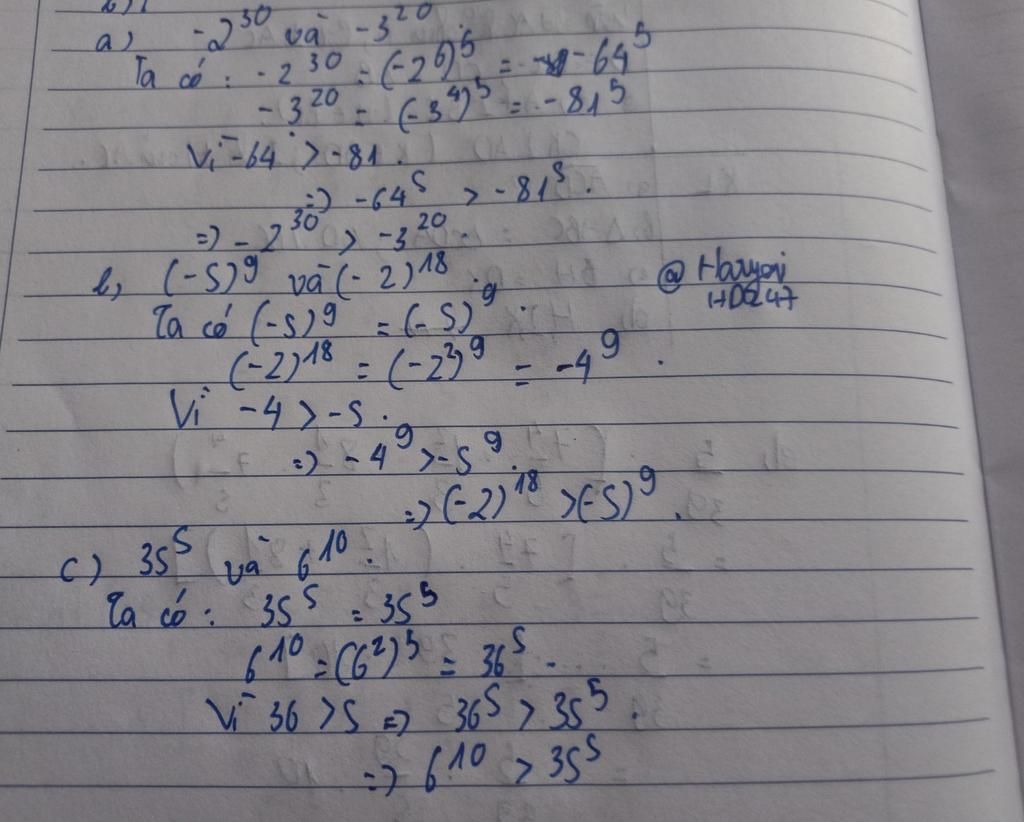 a) -2³⁰ và -3²⁰
Ta có : -2³⁰ = (-2⁶)⁵ = -64⁵
-3²⁰ = (-3⁴)⁵ = -81⁵
Vì -64 > -81.
=> -64⁵ > -81⁵.
=> -2³⁰ > -3²⁰.
b, (-5)⁹ và (-2)¹⁸
@Haryoi
HD247
Ta có (-5)⁹ = (-5)⁹.
(-2)¹⁸ = (-2²)⁹ = -4⁹.
Vì -4 > -5.
=> -4⁹ > -5⁹.
=> (-2)¹⁸ > (-5)⁹.
c) 35⁵ và 6¹⁰.
Ta có : 35⁵ = 35⁵
6¹⁰ = (6²)⁵ = 36⁵.
Vì 36 > 5 => 36⁵ > 35⁵.
=> 6¹⁰ > 35⁵